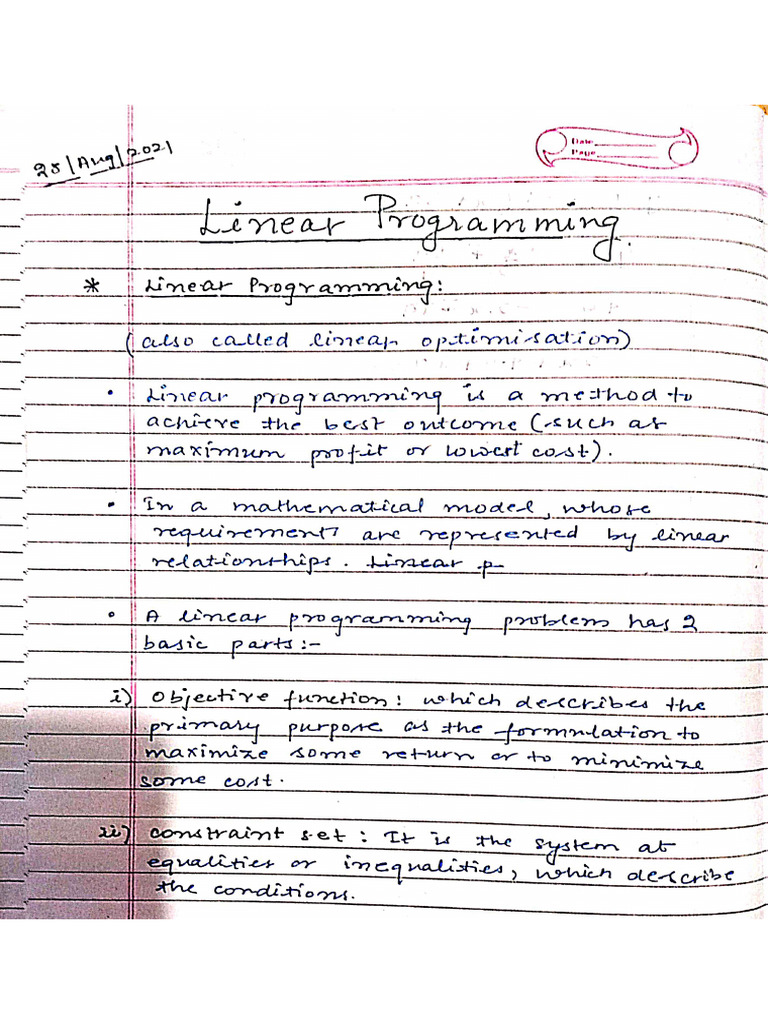 25/Aug/2021
Date
Page
Linear Programming.
* Linear Programming:
(also called linear optimisation)
• Linear programming is a method to
achieve the best outcome (such as
maximum profit or lowest cost).
• In a mathematical model, whose
requirement are represented by linear
relationships. Linear p
• A linear programming problem has 2
basic parts:-
i) Objective function: which describes the
primary purpose as the formulation to
maximize some return or to minimize
some cost.
ii) constraint set: It is the system at
equalities or inequalities, which describe
the conditions.